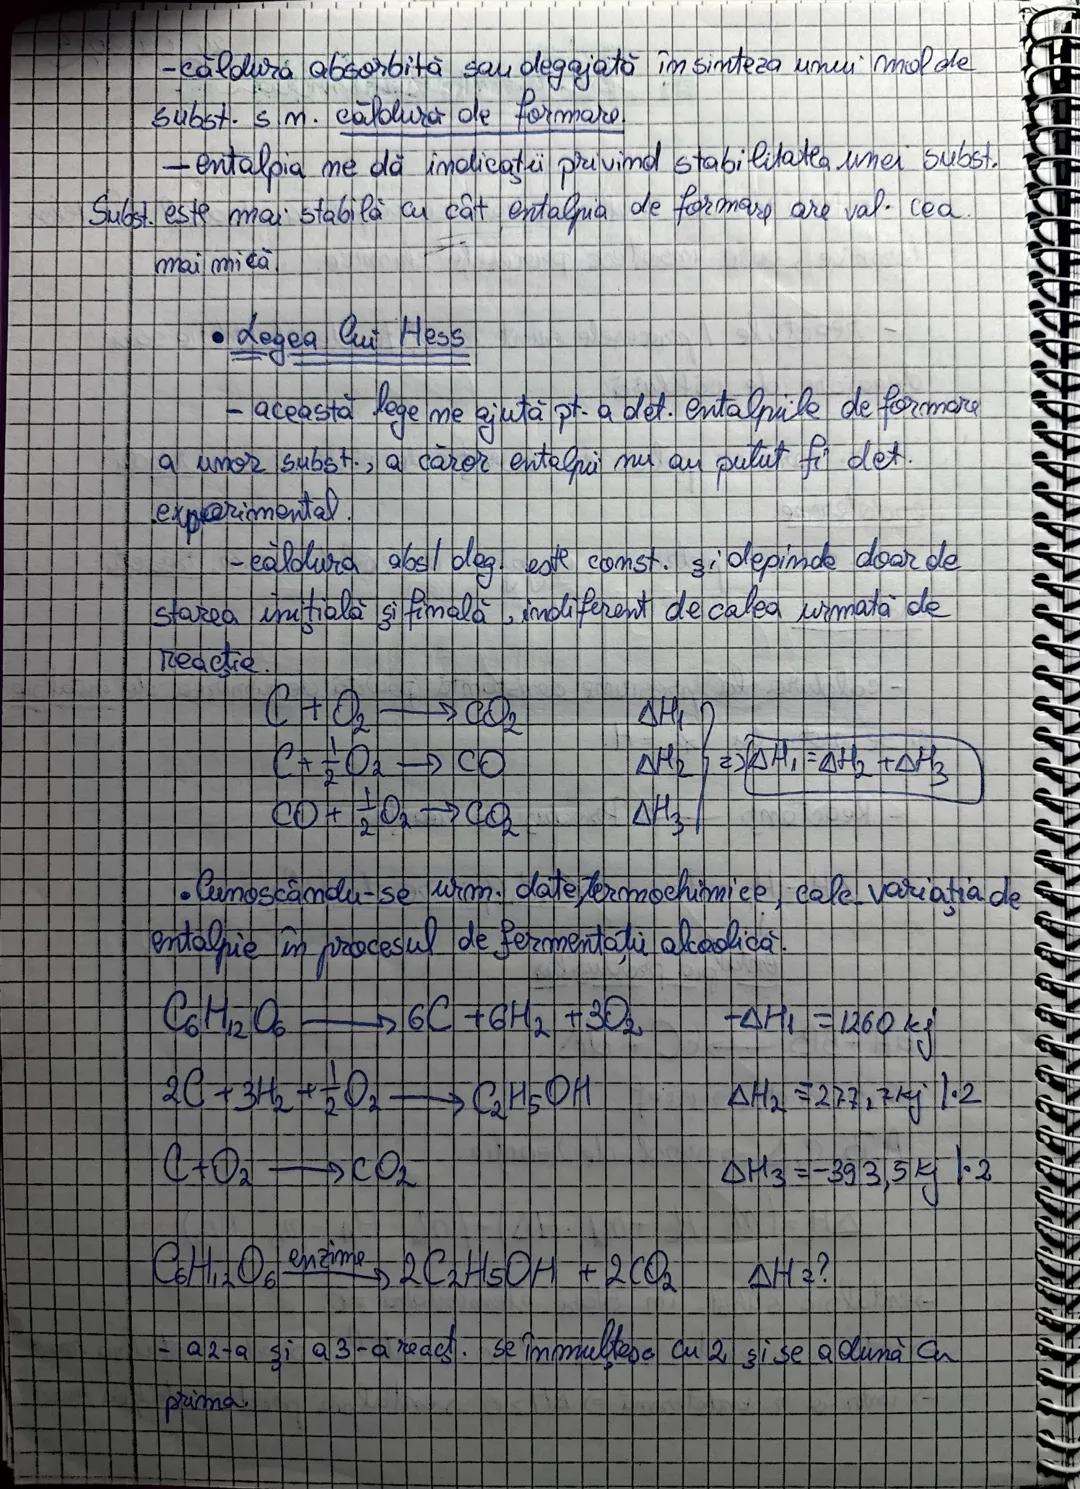 -căldura absorbită sau degajată în sinteza unui mol de
subst. s.n. căldură de formare.
- entalpia ne dă indicații privind stabilitatea unei subst.
Subst. este mai stabilă cu cât entalpia de formare are val. cea
mai mică.
• Legea lui Hess
- această lege ne ajută pt. a det. entalpiile de formare
a unor subst., a căror entalpii nu au putut fi det.
experimental.
- căldura abs/ deg. este const. și depinde doar de
starea inițială și finală, indiferent de calea urmată de
reacție.
C + O₂ → CO₂ ΔH₁
C + 1/2 O₂ → CO ΔH₂ => ΔH₁ = ΔH₂ + ΔH₃
CO + 1/2 O₂ → CO₂ ΔH₃
• Cunoscându-se urm. date termochimice, calc. variația de
entalpie în procesul de fermentații alcoolică.
C₆H₁₂O₆ → 6C + 6H₂ + 3O₂ -ΔH₁ = 1260 kj
2C + 3H₂ + 1/2 O₂ → C₂H₅OH ΔH₂ = -277,7 kj |·2
C + O₂ → CO₂ ΔH₃ = -393,5 kj |·2
C₆H₁₂O₆ enzime → 2C₂H₅OH + 2CO₂ ΔH = ?
- a 2-a și a 3-a react. se înmulțesc cu 2 și se adună cu
prima.